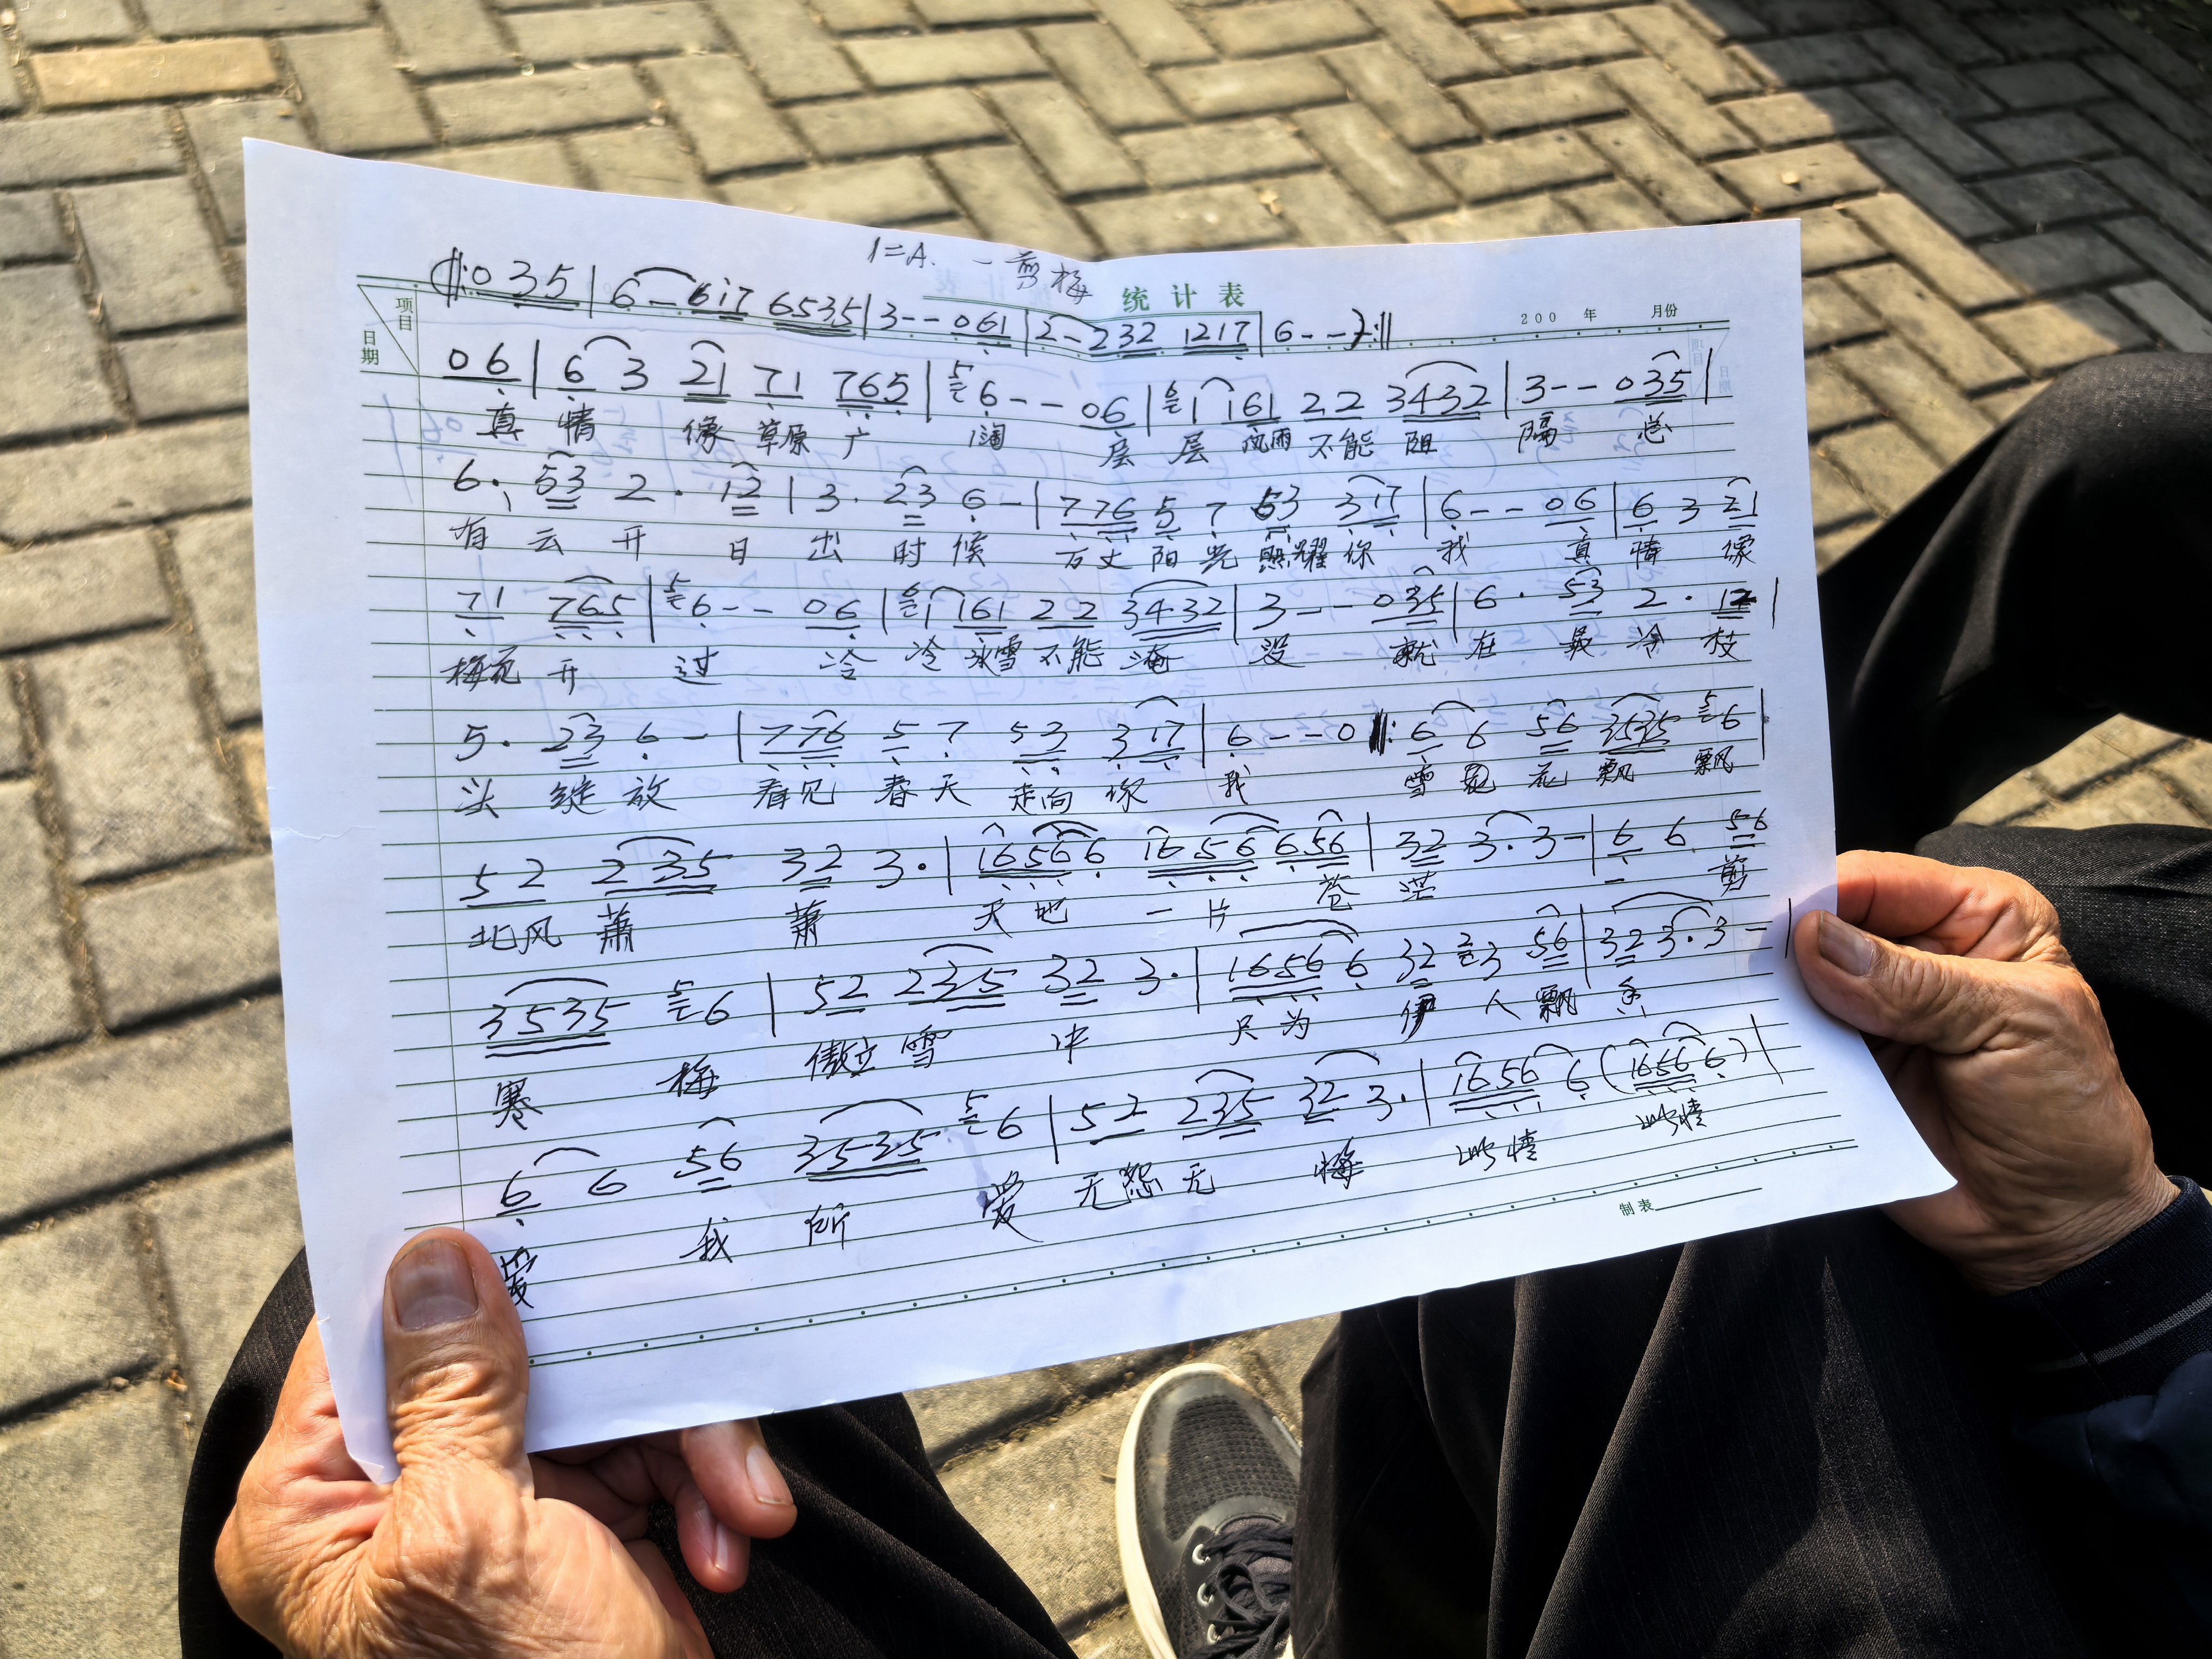 1=A. 一剪梅
统计表
200 年 月份
项目
日期
(‖:0 3 5 | 6 — 6 i 7 6535 | 3 - - 061 | 2 - 232 1217 | 6 - - ):‖
06 | 6 3 21 71 765 | 5 6 - - 06 | 6 1 161 22 3432 | 3 - - 035 |
真 情 像 草原 广 阔 层 层 风雨 不能 阻 隔 总
6· 53 2· 12 | 3· 23 6 - | 776 5 7 53 317 | 6 - - 06 | 6 3 21
有 云 开 日 出 时 候 万丈 阳 光 照耀 你 我 真 情 像
71 765 | 5 6 - - 06 | 6 1 161 22 3432 | 3 - - 035 | 6· 53 2· 12 |
梅花 开 过 冷 冷 冰雪 不能 淹 没 就 在 最 冷 枝
5· 23 6 - | 776 5 7 53 317 | 6 - - 0 ‖: 6 6 56 3535 5 6 |
头 绽 放 看见 春 天 走向 你 我 雪 花 飘 飘
52 235 32 3· | 16566 1656 656 | 32 3·3 - | 6 6 56
北风 萧 萧 天 地 一 片 苍 茫 一 剪
3535 5 6 | 52 235 32 3· | 1656 6 32 2 3 56 | 32 3·3 - |
寒 梅 傲立 雪 中 只 为 伊 人 飘 香
6 6 56 3535 5 6 | 52 235 32 3· | 1656 6 (1656 6) |
爱 我 所 爱 无 怨 无 悔 此 情 此情
制表